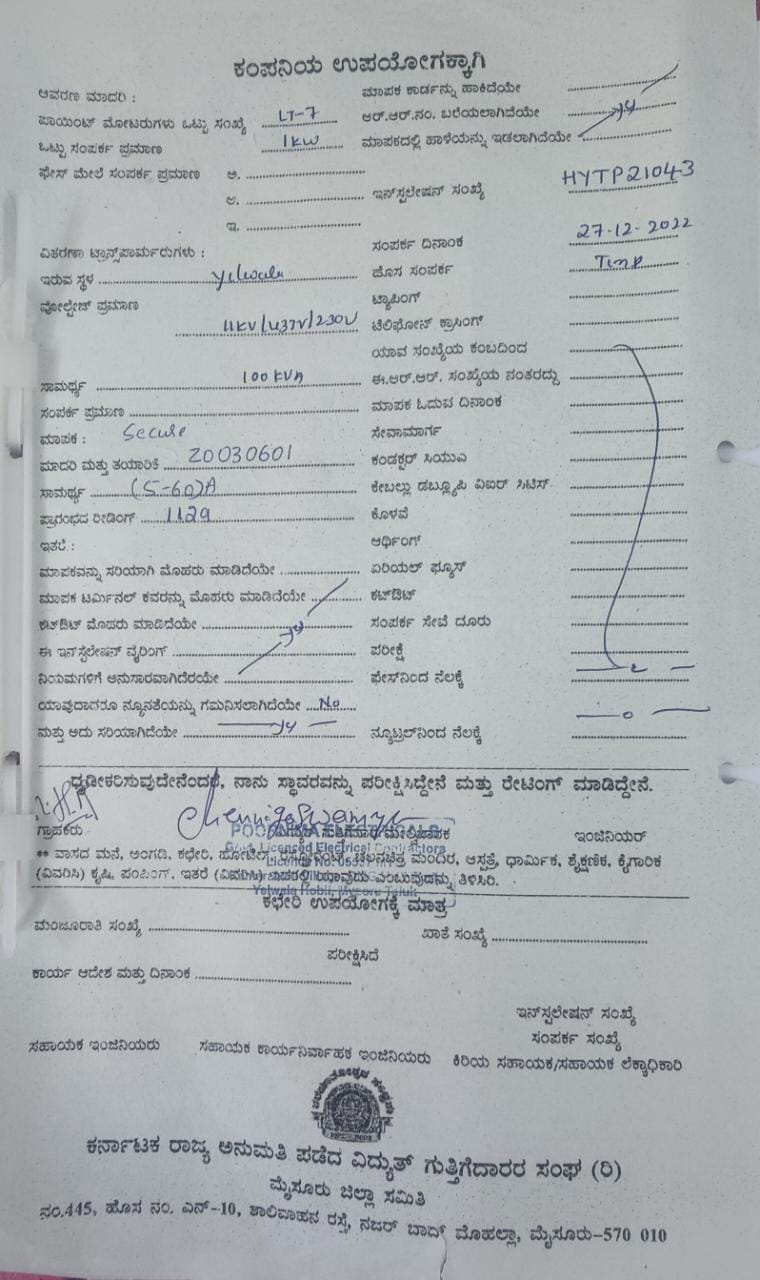 ಕಂಪನಿಯ ಉಪಯೋಗಕ್ಕಾಗಿ
ಆವರಣ ಮಾದರಿ :
ಮಾಪಕ ಕಾರ್ಡನ್ನು ಹಾಕಿದೆಯೇ
ಪಾಯಿಂಟ್ ಮೋಟರುಗಳು ಒಟ್ಟು ಸಂಖ್ಯೆ LT-7
ಆರ್.ಆರ್.ನಂ. ಬರೆಯಲಾಗಿದೆಯೇ
ಒಟ್ಟು ಸಂಪರ್ಕ ಪ್ರಮಾಣ 1KW
ಮಾಪಕದಲ್ಲಿ ಹಾಳೆಯನ್ನು ಇಡಲಾಗಿದೆಯೇ
ಫೇಸ್ ಮೇಲೆ ಸಂಪರ್ಕ ಪ್ರಮಾಣ ಅ.
ಅ.
ಇನ್‌ಸ್ಟಲೇಷನ್ ಸಂಖ್ಯೆ HYTP21043
ಇ.
ವಿತರಣಾ ಟ್ರಾನ್ಸ್‌ಪಾರ್ಮರುಗಳು :
ಸಂಪರ್ಕ ದಿನಾಂಕ 27-12-2022
ಇರುವ ಸ್ಥಳ Yelwala
ಹೊಸ ಸಂಪರ್ಕ Temp
ವೋಲ್ಟೇಜ್ ಪ್ರಮಾಣ
ಟ್ಯಾಪಿಂಗ್
11KV/437V/230V
ಟೆಲಿಫೋನ್ ಕ್ರಾಸಿಂಗ್
ಯಾವ ಸಂಖ್ಯೆಯ ಕಂಬದಿಂದ
ಸಾಮರ್ಥ್ಯ 100 KVA
ಈ.ಆರ್.ಆರ್. ಸಂಖ್ಯೆಯ ನಂತರದ್ದು
ಸಂಪರ್ಕ ಪ್ರಮಾಣ
ಮಾಪಕ ಓದುವ ದಿನಾಂಕ
ಮಾಪಕ : Secure
ಸೇವಾಮಾರ್ಗ
ಮಾದರಿ ಮತ್ತು ತಯಾರಿಕೆ 20030601
ಕಂಡಕ್ಟರ್ ಸಿಯುಎ
ಸಾಮರ್ಥ್ಯ (5-60)A
ಕೇಬಲ್ಲು ಡಬ್ಲ್ಯೂಪಿ ವಿಐರ್ ಸಿಟಿಸ್
ಪ್ರಾರಂಭದ ರೀಡಿಂಗ್ 1129
ಕೊಳವೆ
ಇತರೆ :
ಆರ್ಥಿಂಗ್
ಮಾಪಕವನ್ನು ಸರಿಯಾಗಿ ಮೊಹರು ಮಾಡಿದೆಯೇ
ಏರಿಯಲ್ ಫ್ಯೂಸ್
ಮಾಪಕ ಟರ್ಮಿನಲ್ ಕವರನ್ನು ಮೊಹರು ಮಾಡಿದೆಯೇ
ಕಟ್‌ಔಟ್
ಕಟ್‌ಔಟ್ ಮೊಹರು ಮಾಡಿದೆಯೇ
ಸಂಪರ್ಕ ಸೇವೆ ದೂರು
ಈ ಇನ್‌ಸ್ಟಲೇಷನ್ ವೈರಿಂಗ್
ಪರೀಕ್ಷೆ
ನಿಯಮಗಳಿಗೆ ಅನುಸಾರವಾಗಿದೆರಯೇ
ಫೇಸ್‌ನಿಂದ ನೆಲಕ್ಕೆ
ಯಾವುದಾದರೂ ನ್ಯೂನತೆಯನ್ನು ಗಮನಿಸಲಾಗಿದೆಯೇ No
ಮತ್ತು ಅದು ಸರಿಯಾಗಿದೆಯೇ
ನ್ಯೂಟ್ರಲ್‌ನಿಂದ ನೆಲಕ್ಕೆ
ಧೃಡೀಕರಿಸುವುದೇನೆಂದರೆ, ನಾನು ಸ್ಥಾವರವನ್ನು ಪರೀಕ್ಷಿಸಿದ್ದೇನೆ ಮತ್ತು ರೇಟಿಂಗ್ ಮಾಡಿದ್ದೇನೆ.
Chennigaswamy
ಗ್ರಾಹಕರು
ಇಂಜಿನಿಯರ್
Govt. Licenced Electrical Contractors
** ವಾಸದ ಮನೆ, ಅಂಗಡಿ, ಕಛೇರಿ, ಹೋಟೆಲ್, ಚಲನಚಿತ್ರ ಮಂದಿರ, ಆಸ್ಪತ್ರೆ, ಧಾರ್ಮಿಕ, ಶೈಕ್ಷಣಿಕ, ಕೈಗಾರಿಕ
(ವಿವರಿಸಿ) ಕೃಷಿ, ಪಂಪಿಂಗ್, ಇತರೆ (ವಿವರಿಸಿ) ಇದರಲ್ಲಿ ಯಾವುದು ಎಂಬುವುದನ್ನು ತಿಳಿಸಿರಿ.
Yelwala Hobli, Mysore Taluk
ಕಛೇರಿ ಉಪಯೋಗಕ್ಕೆ ಮಾತ್ರ
ಮಂಜೂರಾತಿ ಸಂಖ್ಯೆ
ಖಾತೆ ಸಂಖ್ಯೆ
ಪರೀಕ್ಷಿಸಿದೆ
ಕಾರ್ಯ ಆದೇಶ ಮತ್ತು ದಿನಾಂಕ
ಇನ್‌ಸ್ಟಲೇಷನ್ ಸಂಖ್ಯೆ
ಸಂಪರ್ಕ ಸಂಖ್ಯೆ
ಸಹಾಯಕ ಇಂಜಿನಿಯರು ಸಹಾಯಕ ಕಾರ್ಯನಿರ್ವಾಹಕ ಇಂಜಿನಿಯರು ಕಿರಿಯ ಸಹಾಯಕ/ಸಹಾಯಕ ಲೆಕ್ಕಾಧಿಕಾರಿ
ಕರ್ನಾಟಕ ರಾಜ್ಯ ಅನುಮತಿ ಪಡೆದ ವಿದ್ಯುತ್ ಗುತ್ತಿಗೆದಾರರ ಸಂಘ (ರಿ)
ಮೈಸೂರು ಜಿಲ್ಲಾ ಸಮಿತಿ
ನಂ.445, ಹೊಸ ನಂ. ಎನ್-10, ಶಾಲಿವಾಹನ ರಸ್ತೆ, ನಜರ್ ಬಾದ್ ಮೊಹಲ್ಲಾ, ಮೈಸೂರು-570 010